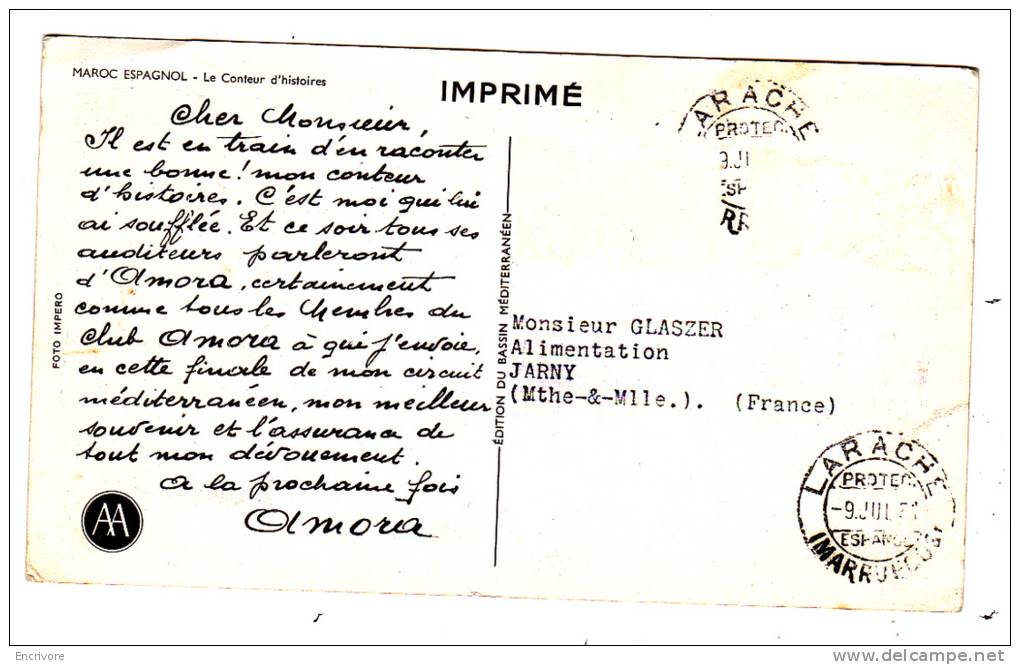 MAROC ESPAGNOL - Le Conteur d'histoires
IMPRIMÉ
Cher Monsieur,
Il est en train d'en raconter
une bonne! mon conteur
d'histoires. C'est moi qui lui
ai soufflée. Et ce soir tous ses
auditeurs parleront
d'Amora, certainement
comme tous les Membres du
Club Amora à qui j'envoie,
en cette finale de mon circuit
méditerranéen, mon meilleur
souvenir et l'assurance de
tout mon dévouement.
A la prochaine fois
Amora
AA
FOTO IMPERO
ÉDITION DU BASSIN MÉDITERRANÉEN
Monsieur GLASZER
Alimentation
JARNY
(Mthe-&-Mlle.). (France)
LARACHE
PROTEC
9.JUL
ESP
LARACHE
PROTEC
-9.JUL
(MARRUECOS)
Encrivore
http://www.delcampe.net